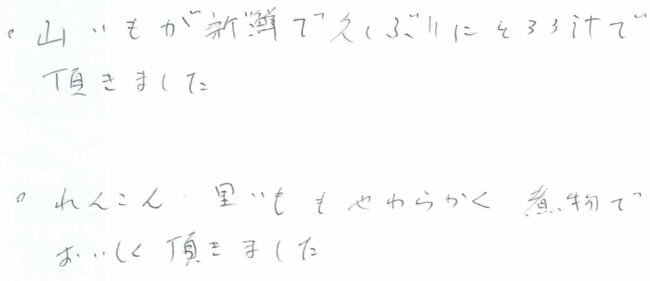 。山いもが新鮮で久しぶりにとろろ汁で
頂きました
。れんこん 里いももやわらかく 煮物で
おいしく 頂きました